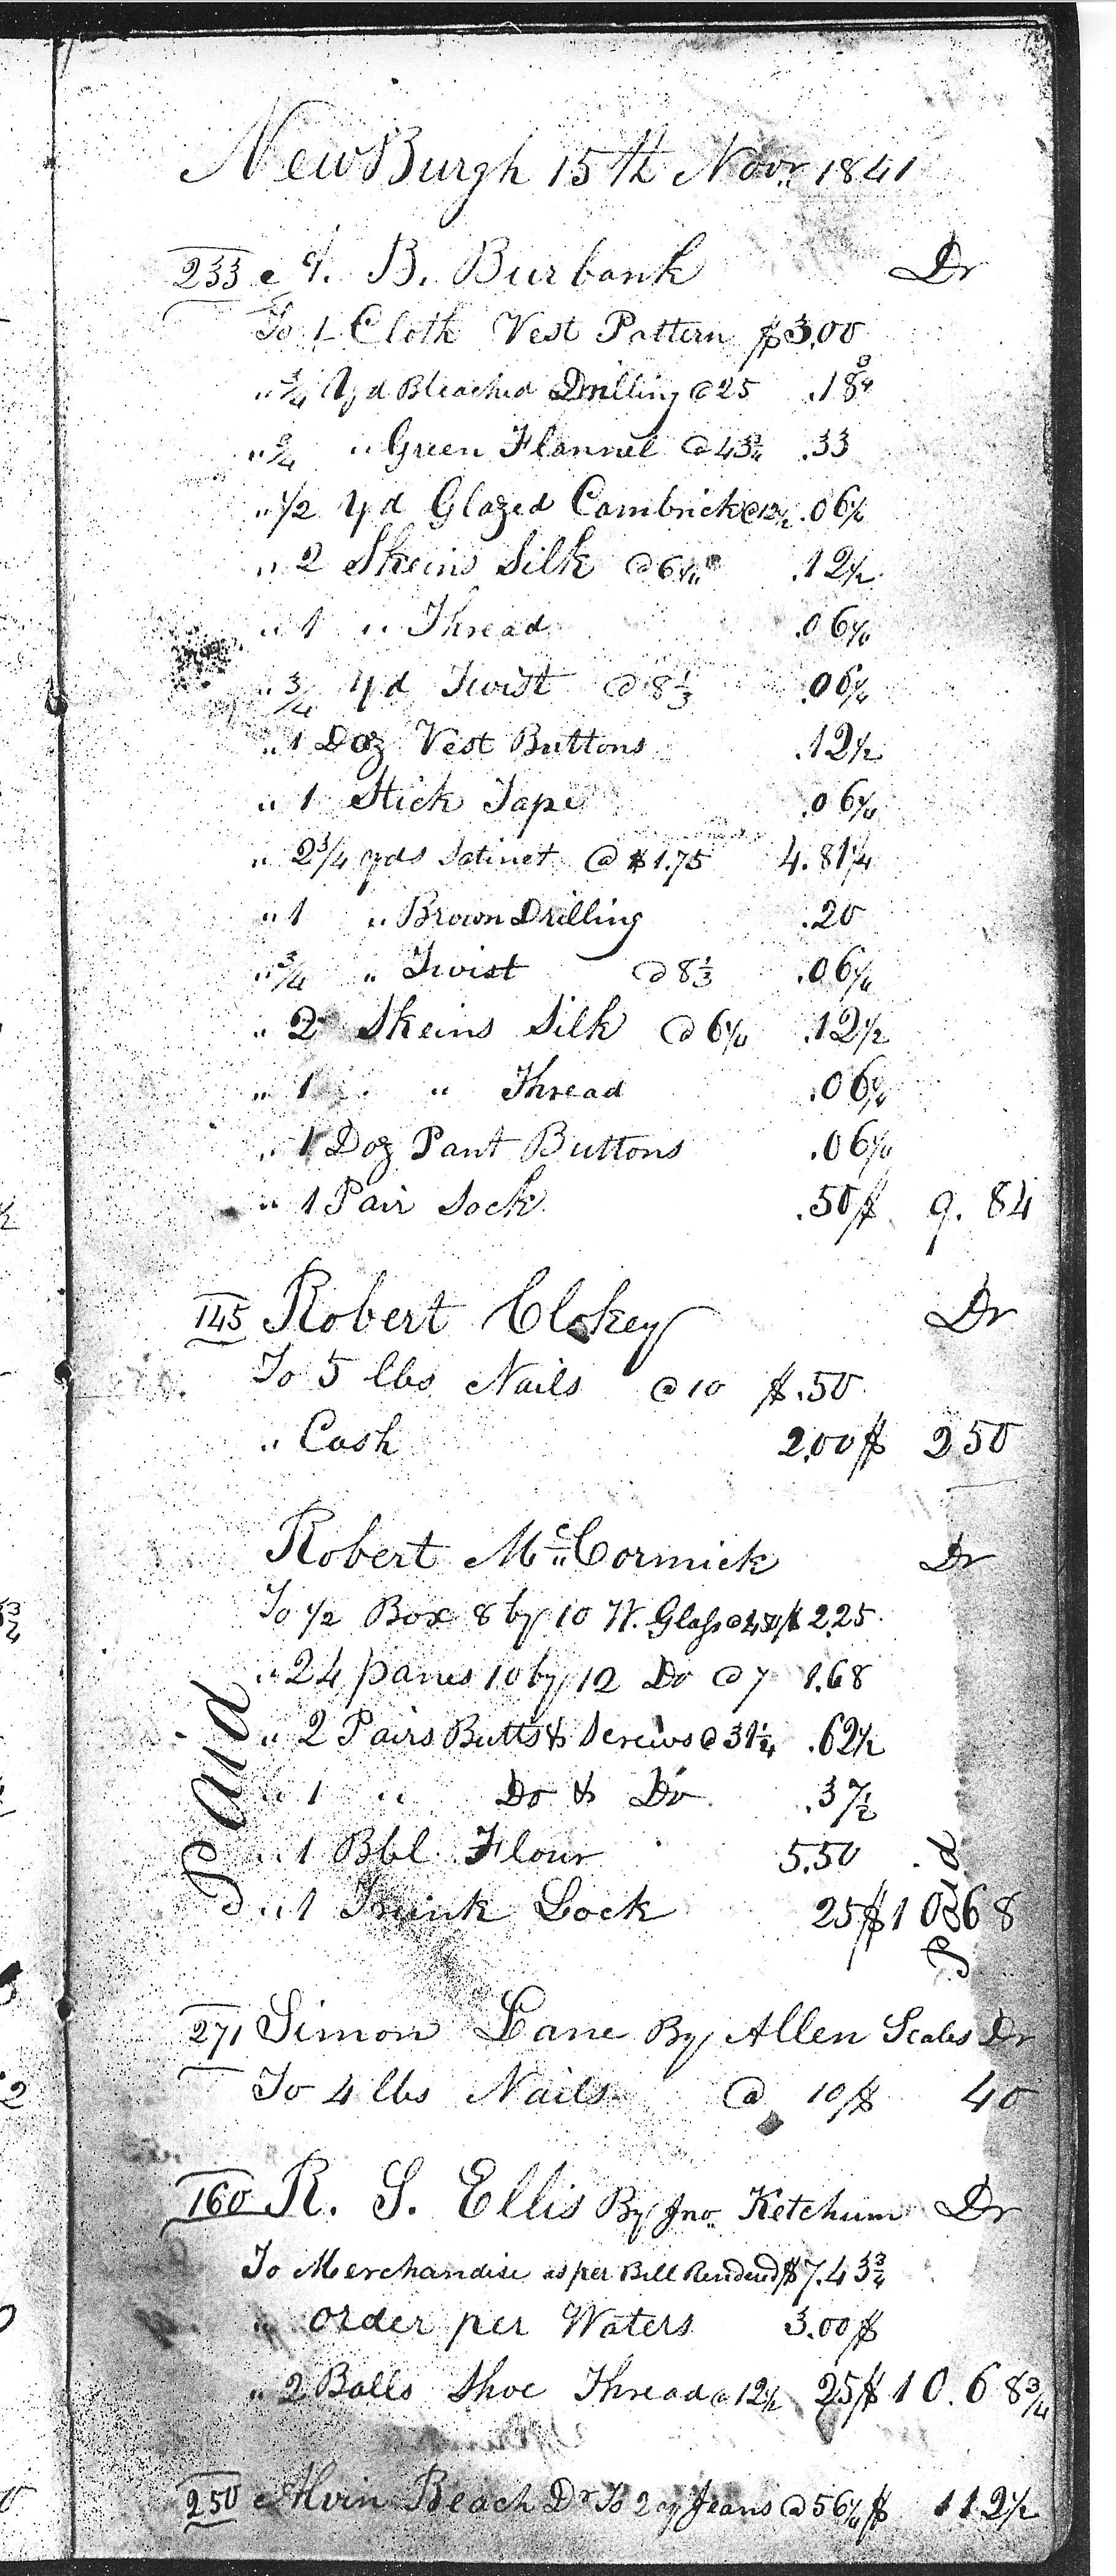 NewBurgh 15th Novr 1841
233 A. B. Burbank Dr
To 1 Cloth Vest Pattern $3.00
" 3/4 Yd Bleached Drilling @ 25 .18 3/4
" 3/4 " Green Flannel @ 43 3/4 .33
" 1/2 Yd Glazed Cambrick @ 12 1/2 .06 1/4
" 2 Skeins Silk @ 6 1/4 .12 1/2
" 1 " Thread .06 1/4
" 3/4 Yd Twist @ 8 1/3 .06 1/4
" 1 Doz Vest Buttons .12 1/2
" 1 Stick Tape .06 1/4
" 2 3/4 yds Satinet @ $1.75 4.81 1/4
" 1 " Brown Drilling .20
" 3/4 " Twist @ 8 1/3 .06 1/4
" 2 Skeins Silk @ 6 1/4 .12 1/2
" 1 " Thread .06 1/4
" 1 Doz Pant Buttons .06 1/4
" 1 Pair Sock .50 $ 9.84
145 Robert Clokey Dr
To 5 lbs Nails @ 10 $.50
" Cash 2.00 $ 2 50
Robert McCormick Dr
To 1/2 Box 8 by 10 W. Glass @ 4.50 $ 2.25
" 24 panes 10 by 12 Do @ 7 1.68
" 2 Pairs Butts & Screws @ 31 1/4 .62 1/2
" 1 " Do & Do .37 1/2
" 1 Bbl Flour 5.50
" 1 Trunk Lock 25 $ 10 68
Paid
Paid
271 Simon Lane By Allen Scales Dr
To 4 lbs Nails @ 10 $ 40
160 R. S. Ellis By Jno. Ketchum Dr
To Merchandise as per Bill Rendered $7.43 3/4
" order per Waters 3.00 $
" 2 Balls Shoe Thread @ 12 1/2 25 $ 10.68 3/4
250 Alvin Beach Dr To 2 yd Jeans @ 56 1/4 $ 1 12 1/2